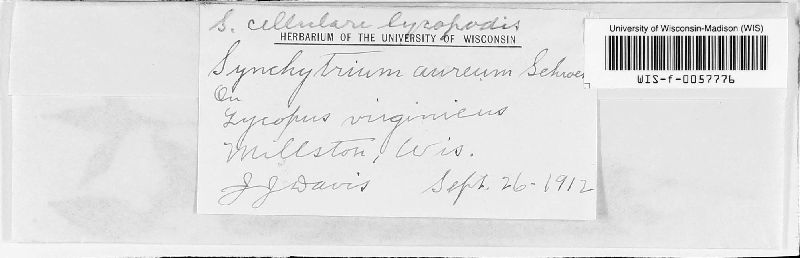 S. cellulare lycopodis
HERBARIUM OF THE UNIVERSITY OF WISCONSIN
Synchytrium aureum Schroe
On
Lycopus virginicus
Millston, Wis.
J J Davis Sept. 26-1912
University of Wisconsin-Madison (WIS)
WIS-f-0057776